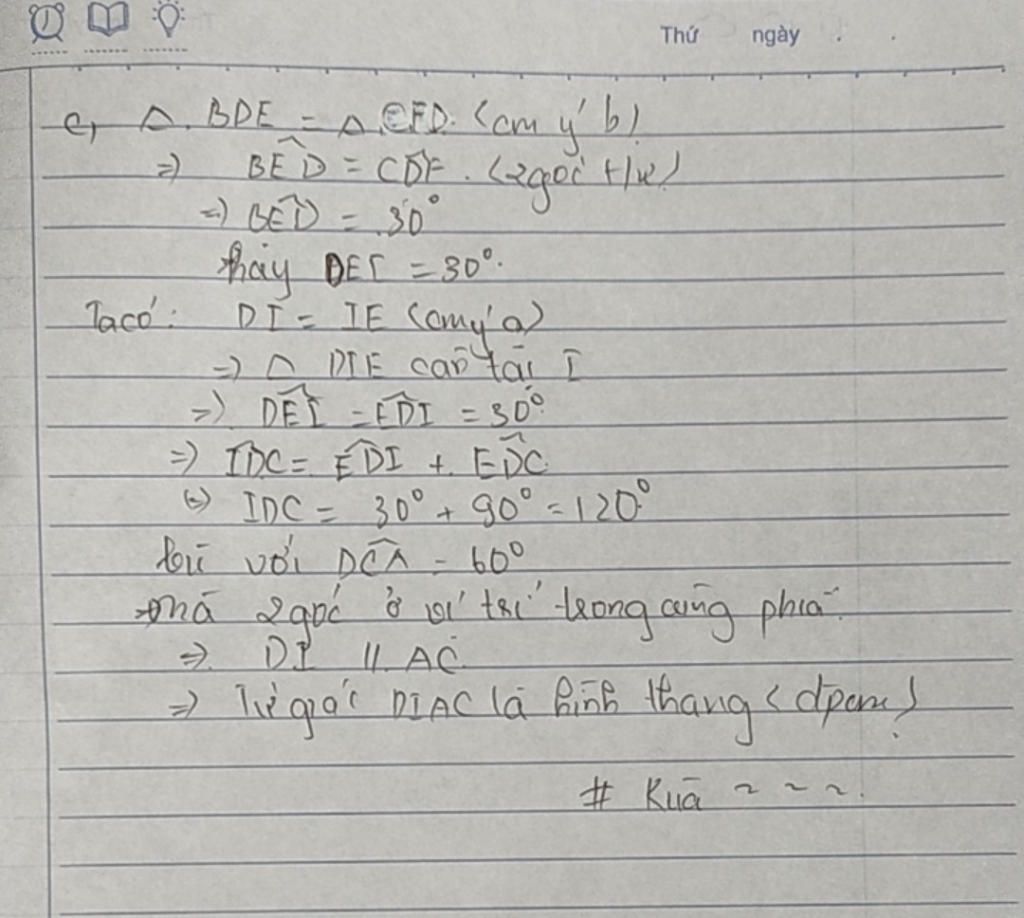 Thứ ngày
c, △ BDE = △ CFD. (cm ý b)
=> BED = CDF. (2góc t/ư)
=> BED = 30°
hay DEI = 30°.
Ta có: DI = IE (cm ý a)
=> △ DIE cân tại I
=> DEI = EDI = 30°
=> IDC = EDI + EDC
(=) IDC = 30° + 90° = 120°
bù với DCA = 60°
mà 2 góc ở vị trí trong cùng phía
=> DI // AC
=> Tứ giác DIAC là hình thang (đpcm)
# Kuā ~ ~ ~.